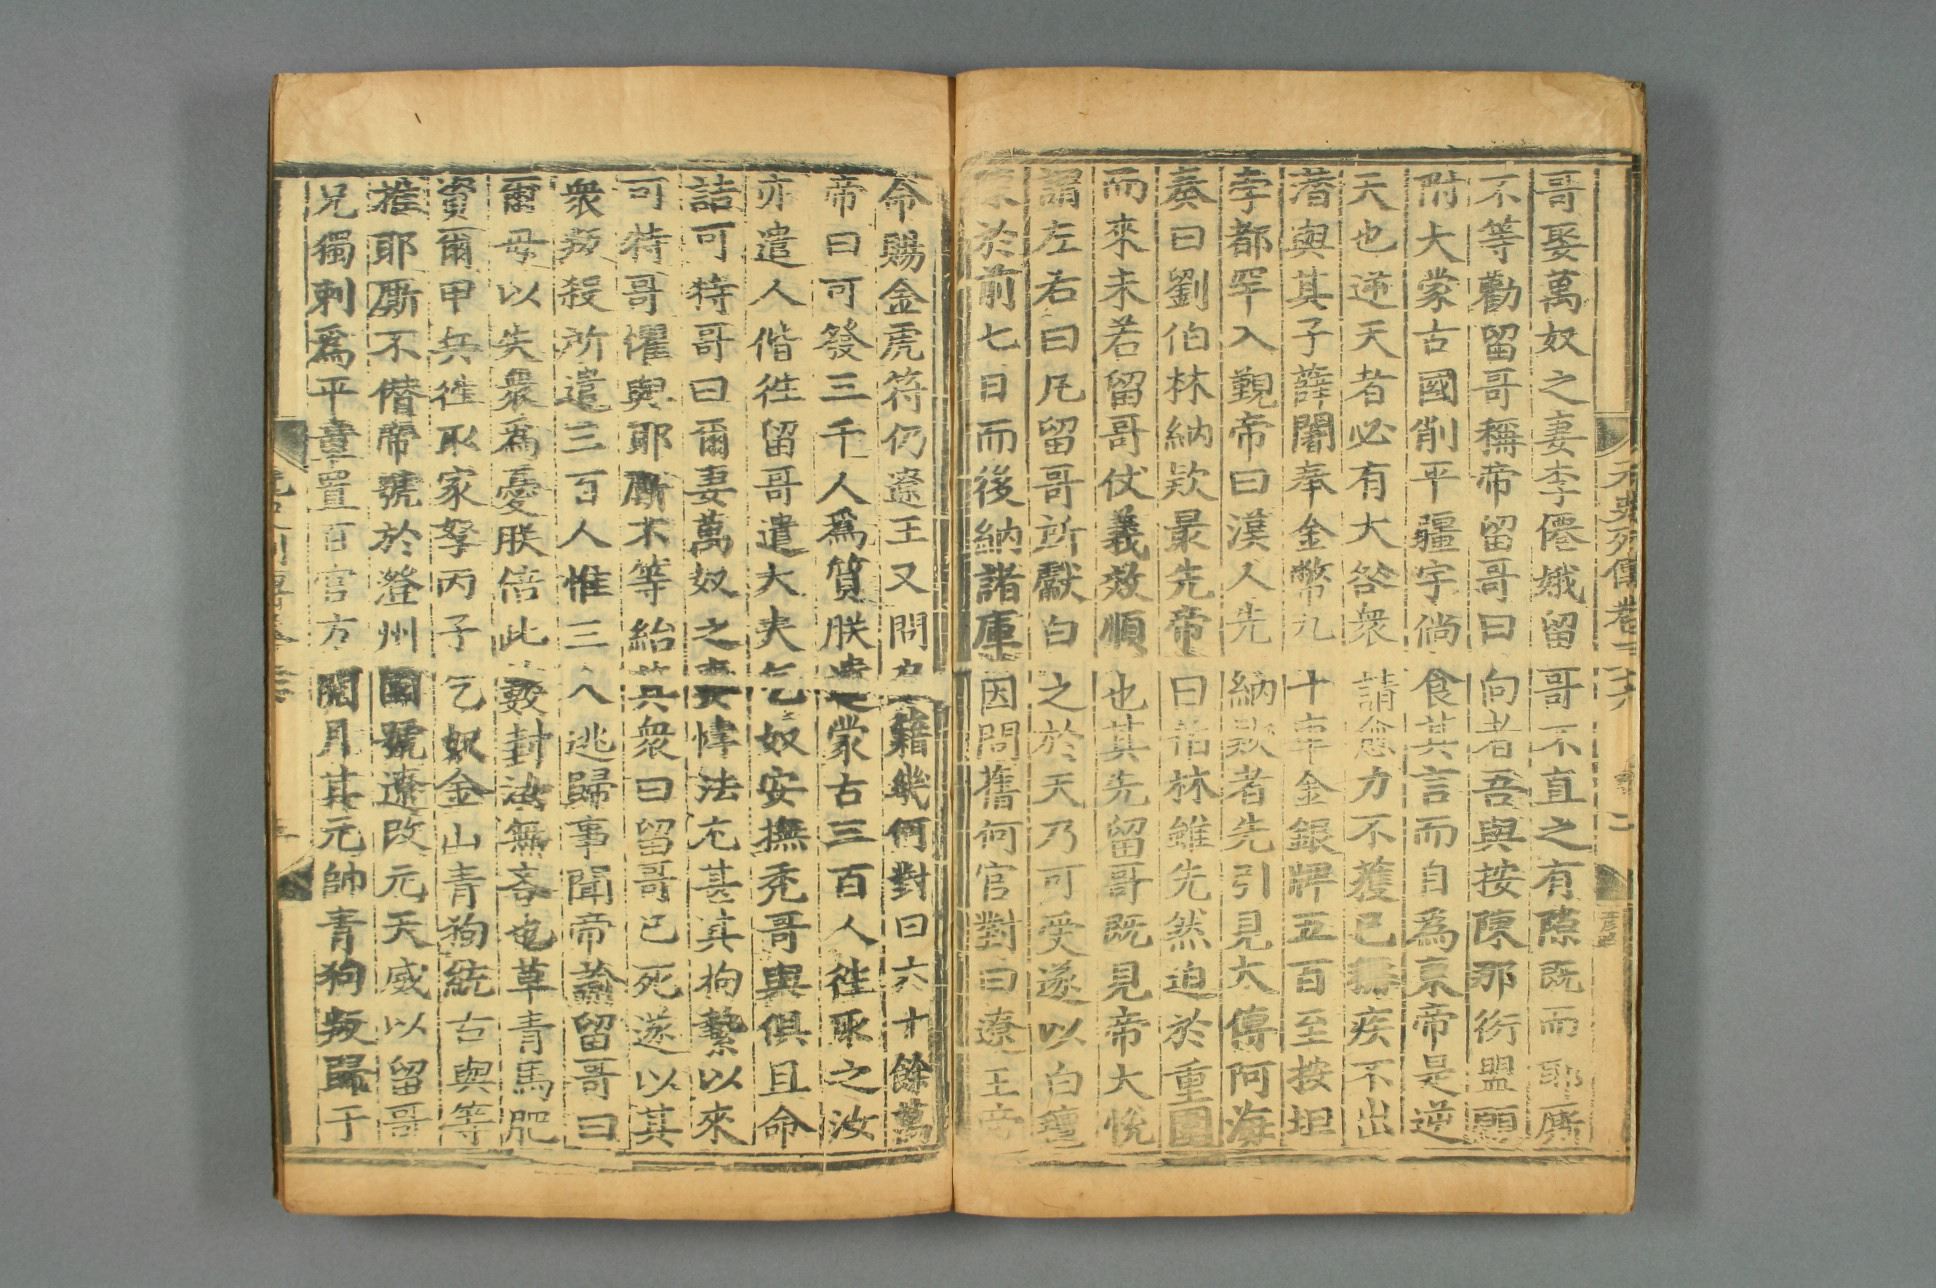 元史列傳卷三十六
二
哥娶萬奴之妻李僊娥留哥不直之有隙既而耶廝
不等勸留哥稱帝留哥曰向者吾與按陳那衍盟願
附大蒙古國削平疆宇倘食其言而自為東帝是逆
天也逆天者必有大咎衆請愈力不獲已稱疾不出
潛與其子薛闍奉金幣九十車金銀牌五百至按坦
孛都罕入覲帝曰漢人先納款者先引見大傅阿海
奏曰劉伯林納款最先帝曰伯林雖先然迫於重圍
而來未若留哥仗義效順也其先留哥既見帝大悅
謂左右曰凡留哥所獻白之於天乃可受遂以白氊
陳於前七日而後納諸庫因問舊何官對曰遼王帝
命賜金虎符仍遼王又問戶籍幾何對曰六十餘萬
帝曰可發三千人爲質朕遣蒙古三百人徃取之汝
亦遣人偕徃留哥遣大夫乞奴安撫禿哥與俱且命
詰可特哥曰爾妻萬奴之妻悖法尤甚其拘縶以來
可特哥懼與耶廝不等紿其衆曰留哥已死遂以其
衆叛殺所遣三百人惟三人逃歸事聞帝諭留哥曰
爾毋以失衆爲憂朕倍此數封汝無吝也草青馬肥
資爾甲兵徃取家孥丙子乞奴金山青狗統古與等
推耶廝不僭帝號於澄州國號遼改元天威以留哥
兄獨剌爲平章置百官方閱月其元帥青狗叛歸于